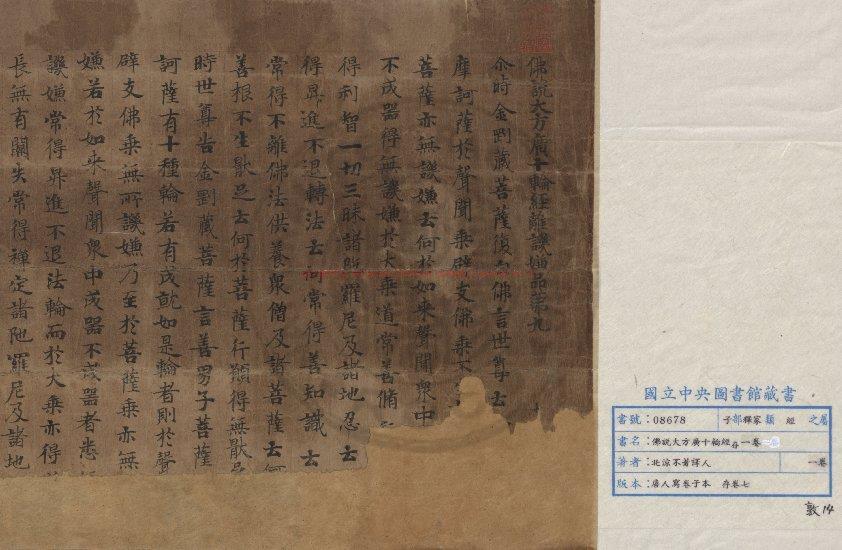 佛說大方廣十輪經離譏嫌品第九
尒時金剛藏菩薩復白佛言世尊云
摩訶薩於聲聞乘辟支佛乘不
菩薩亦無譏嫌云何於如來聲聞眾中
不成器得無譏嫌於大乘道常善脩
得利智一切三昧諸陁羅尼及諸地忍云
得昇進不退轉法云何常得善知識云
常得不離佛法供養眾僧及諸菩薩云何
善根不生猒足云何於菩薩行願得無猒足
時世尊告金剛藏菩薩言善男子菩薩
訶薩有十種輪若有成就如是輪者則於聲
辟支佛乘無所譏嫌乃至於菩薩乘亦無
嫌若於如來聲聞眾中成器不成器者悉
譏嫌常得昇進不退法輪而於大乘亦得
長無有關失常得禪定諸陁羅尼及諸地
國立中央圖書館藏書
書號：08678 子部釋家類 經 之屬
書名：佛說大方廣十輪經存一卷
著者：北涼不著譯人 一卷
版本：唐人寫卷子本 存卷七
敦14